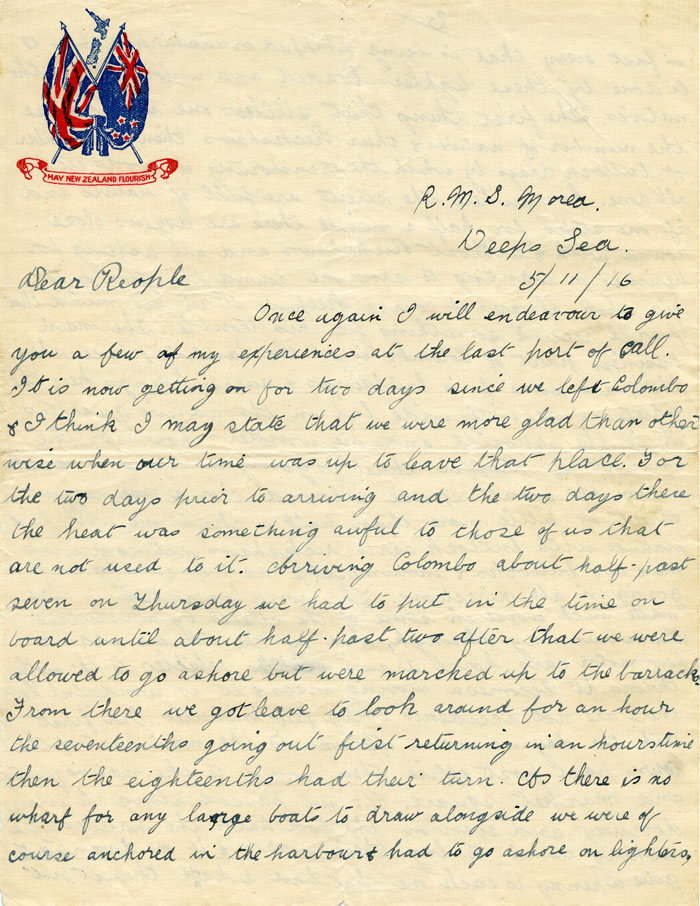 MAY NEW ZEALAND FLOURISH
R. M. S. Morea.
Deeps Sea.
5/11/16
Dear People
Once again I will endeavour to give
you a few of my experiences at the last port of call.
It is now getting on for two days since we left Colombo
& I think I may state that we were more glad than other
wise when our time was up to leave that place. For
the two days prior to arriving and the two days there
the heat was something awful to those of us that
are not used to it. Arriving Colombo about half-past
seven on Thursday we had to put in the time on
board until about half-past two after that we were
allowed to go ashore but were marched up to the barracks.
From there we got leave to look around for an hour
the seventeenths going out first returning in an hours time
then the eighteenths had their turn. As there is no
wharf for any large boats to draw alongside we were of
course anchored in the harbour & had to go ashore on lighters,